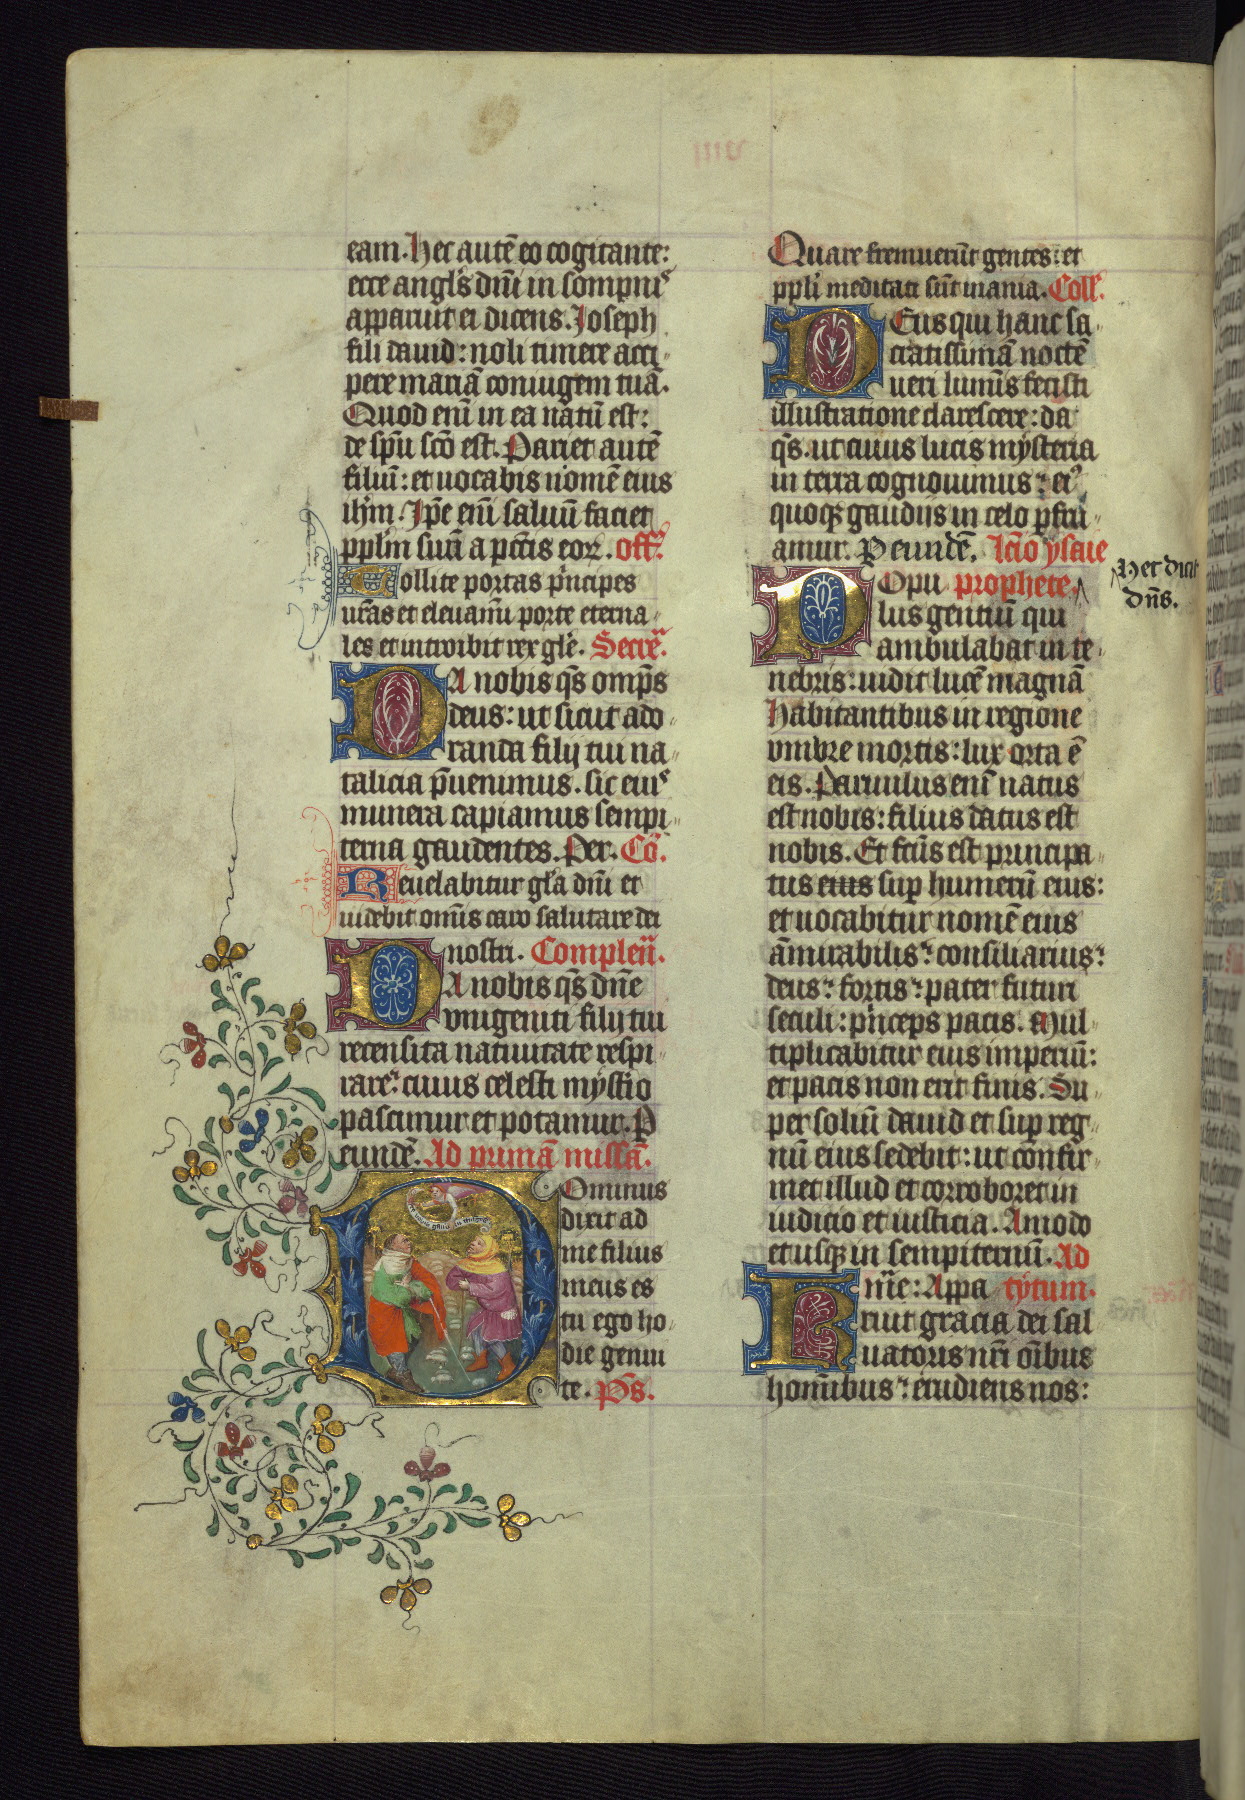 eam. Hec autē eo cogitante:
ecce angl's dn̄i in sompnis
apparuit ei dicens. Joseph
fili dauid: noli timere acci-
pere mariā coniugem tuā.
Quod enī in ea natū est:
de sp̄u sc̄o est. Pariet autē
filiū: et uocabis nomē eius
ih'm. Ip̄e enī saluū faciet
pp'lm suū a pcc̄is eoꝝ. off.
Tollite portas p'ncipes
ur̄as et eleuam̄i porte eterna-
les et introibit rex gl'e. Secrē.
DA nobis qs̄ omp̄s
deus: ut sicut ado-
randa filij tui na-
talicia p̄uenimus. sic eius
munera capiamus sempi-
terna gaudentes. Per. Cō.
Reuelabitur gl'a dn̄i et
uidebit omīs caro salutare dei
nostri. Complen̄.
DA nobis qs̄ dn̄e
vnigeniti filij tui
recensita natiuitate respi-
rare: cuius celesti myst'io
pascimur et potamur. P
eundē. Ad primā missā.
Dominus
dixit ad
me filius
meus es
tu ego ho-
die genui
te. Ps̄.
viii
Quare fremuerūt gentes: et
pp'li meditati sūt inania. Coll'.
DEus qui hanc sa-
cratissimā noctē
ueri luminis fecisti
illustratione clarescere: da
qs̄. ut cuius lucis mysteria
in terra cognouimus: ei'
quoqꝫ gaudiis in celo p̄fru-
amur. P eundē. Lc̄io ysaie
POpu prophete.
Hec dicit
dn̄s.
lus gentiū qui
ambulabat in te-
nebris: uidit lucē magnā
habitantibus in regione
vmbre mortis: lux orta ē
eis. Paruulus enī natus
est nobis: filius datus est
nobis. Et fc̄us est principa-
tus eius sup humerū eius:
et uocabitur nomē eius
am̄irabilis: consiliarius:
deus: fortis: pater futuri
seculi: p'nceps pacis. Mul-
tiplicabitur eius imperiū:
et pacis non erit finis. Su-
per soliū dauid et sup reg-
nū eius sedebit: ut confir-
met illud et corroboret in
iudicio et iusticia. Amodo
et usqꝫ in sempiternū. Ad
Kr̄me: Appa tytum.
ruit gracia dei sal-
uatoris nr̄i oībus
hominibus: erudiens nos: